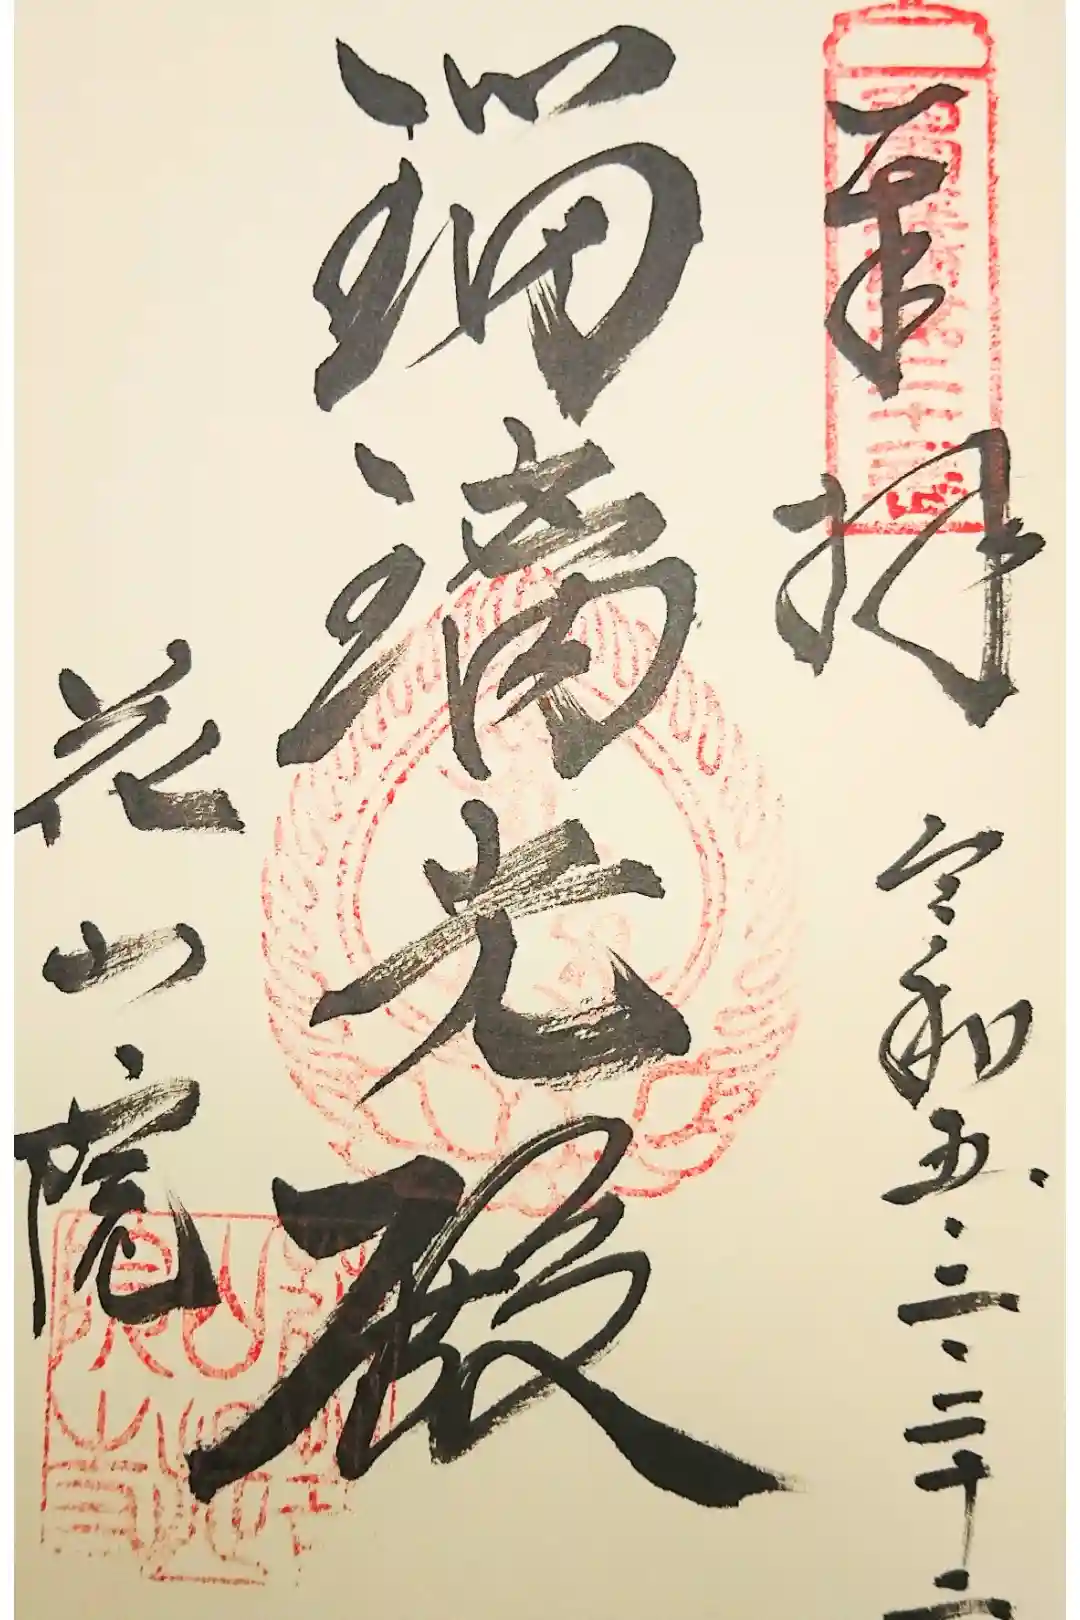 奉拝 令和五.三.二十二
瑠璃光殿
花山院